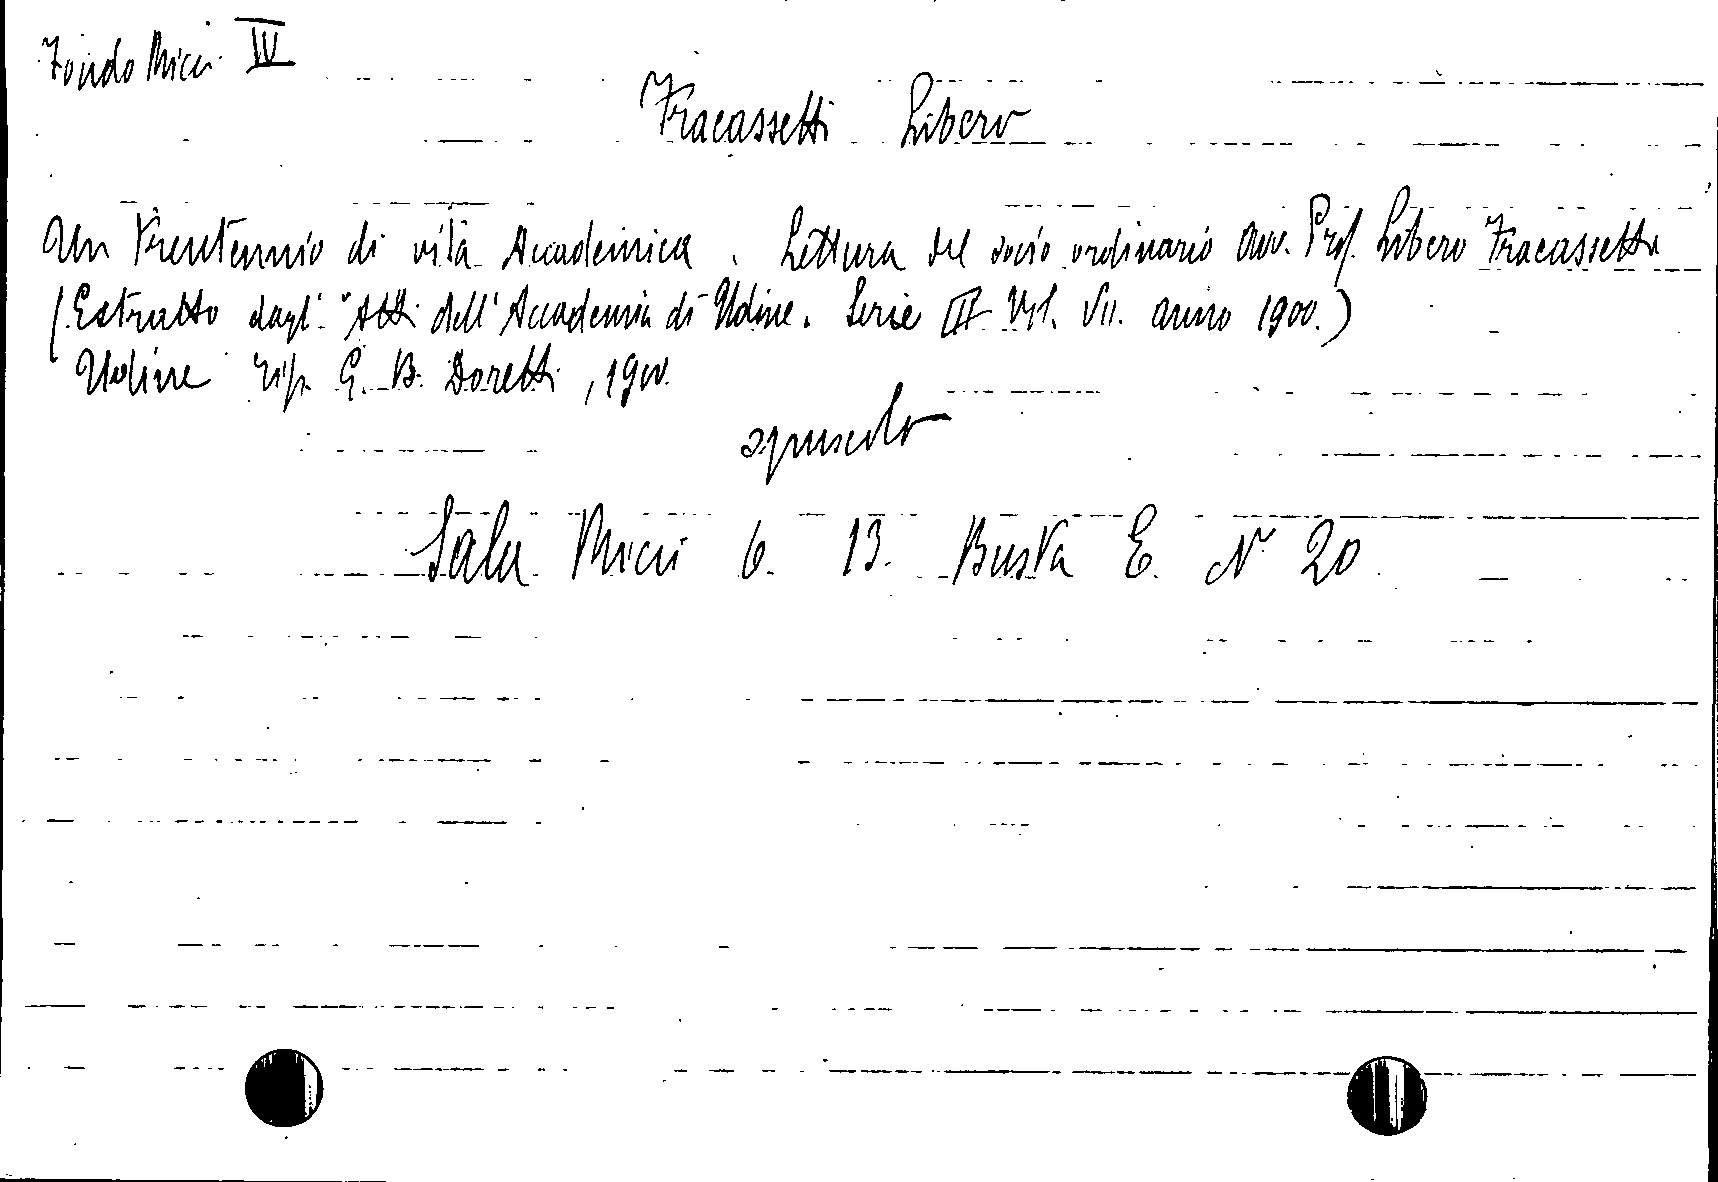 Fondo Micci IV
Fracassetti Libero
Un Trentennio di vita Accademica. Lettura del socio ordinario avv. Prof. Libero Fracassetti
(Estratto dagl' "Atti dell'Accademia di Udine. Serie III Vol. VII. anno 1900.)
Udine Tip. G. B. Doretti, 1900.
opuscolo
Sala Micci 6. 13. Busta E. N° 20